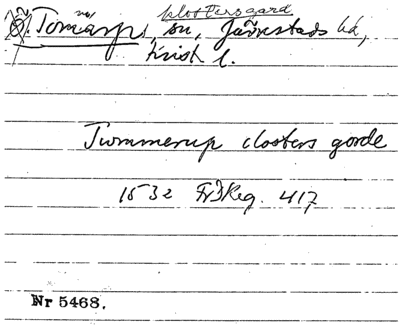 klostersgard
Ö. Tomarp, sn, Järrestads hd,
Krist l.
Tummerup closters gorde
1532 Fr I Reg. 417
Nr 5468.